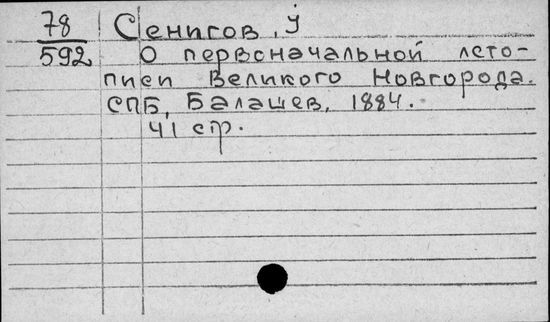 78 Сенигов, И
592 О первоначальной лето-
писи Великого Новгорода.
СПБ, Балашев, 1884.
41 стр.